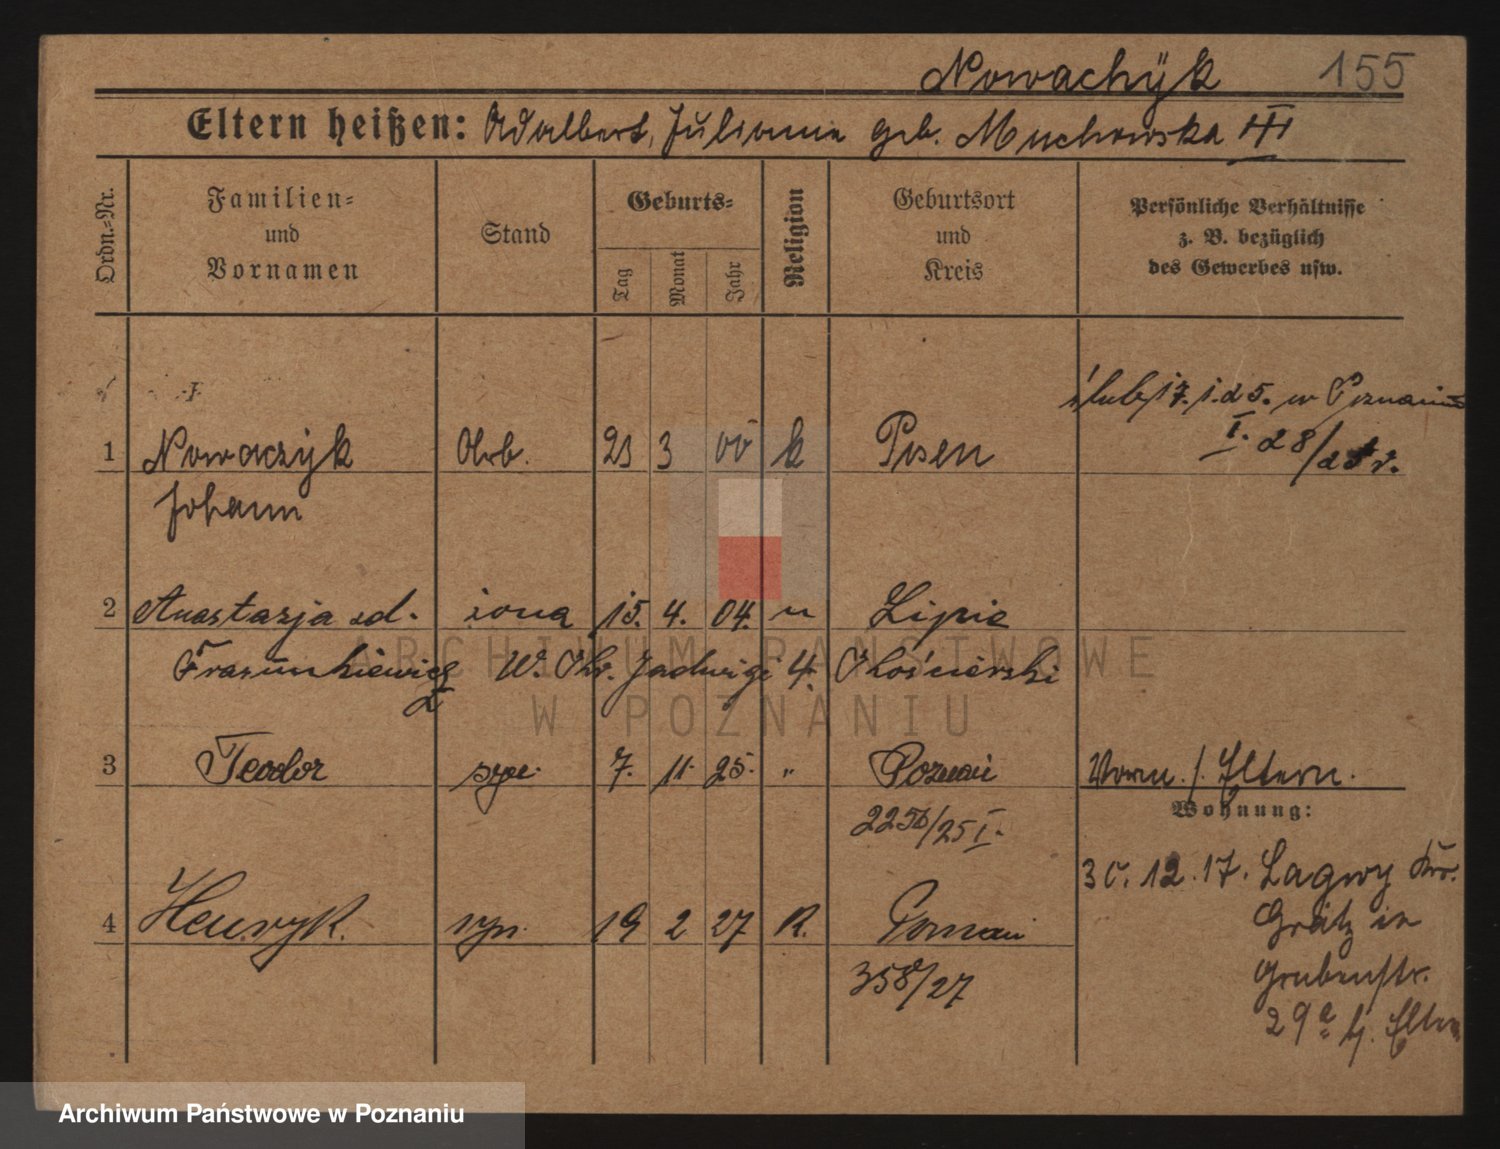 Nowaczÿk 155
Eltern heißen: Adalbert, Julianna geb. Muchowska III
Ordn.-Nr.
Familien-
und
Vornamen
Stand
Geburts-
Tag
Monat
Jahr
Religion
Geburtsort
und
Kreis
Persönliche Verhältnisse
z. B. bezüglich
des Gewerbes usw.
ślub 17. 1. 25. w Poznaniu
I. 28/25 r.
1 Nowaczÿk Arb. 23 3 00 k Posen
Johann
2 Anastazja żona 15. 4. 04. " Lipie
W. Jadwigi 4. Kościerski
3 Teodor syn 7. 11. 25. " Poznań Vorm. Eltern.
/25 I.
Wohnung:
30. 12. 17. Lagwy Krs.
Grätz in
Grubenstr.
29a b. Eltern
4 Henryk syn 19 2 27 R. Poznań
358/27
ARCHIWUM PAŃSTWOWE
W POZNANIU
Archiwum Państwowe w Poznaniu